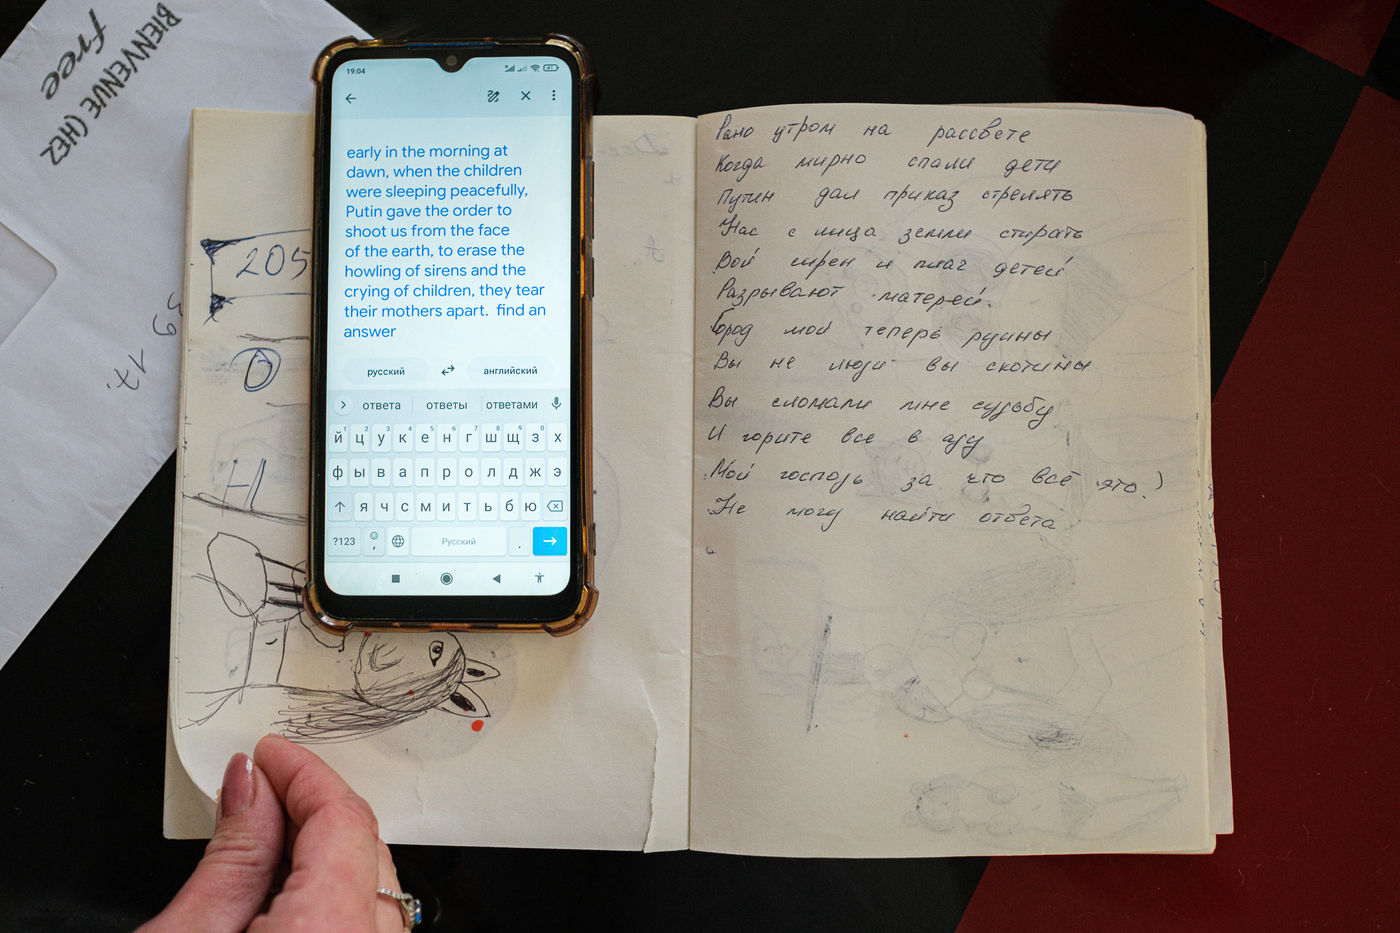 BIENVENUE CHEZ
free
19:04
early in the morning at
dawn, when the children
were sleeping peacefully,
Putin gave the order to
shoot us from the face
of the earth, to erase the
howling of sirens and the
crying of children, they tear
their mothers apart.  find an
answer
русский
английский
ответа ответы ответами
й1 ц2 у3 к4 е5 н6 г7 ш8 щ9 з0 х
ф ы в а п р о л д ж э
я ч с м и т ь б ю
?123 , Русский .
205
17.
Рано утром на рассвете
Когда мирно спали дети
Путин дал приказ стрелять
Нас с лица земли стирать
Вой сирен и плач детей
Разрывают матерей.
Город мой теперь руины
Вы не люди вы скотины
Вы сломали мне судьбу
И горите все в аду
Мой господь за что всё это?
Не могу найти ответа